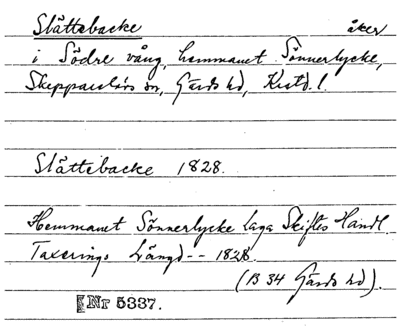 Slättebacke åker
i Södre vång, hemmanet Sönnerlycke,
Skepparslövs sn, Gärds hd, Kristd. l.
Slättebacke 1828.
Hemmanet Sönnerlycke Laga Skiftes Handl.
Taxerings Längd -- 1828.
(B 34 Gärds hd).
Nr 5337.